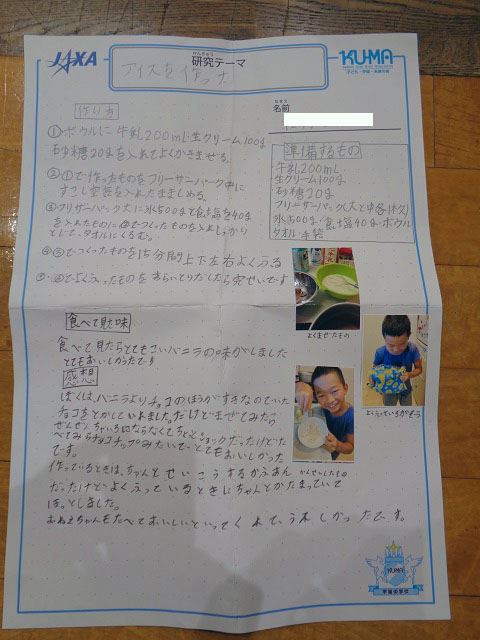 JAXA
けんきゅう
研究テーマ
アイスを作った
KUMA
子ども・宇宙・未来の会
なまえ
名前
作り方
①ボウルに牛乳200mL生クリーム100g
砂糖20gを入れてよくかきまぜる。
②①で作ったものをフリーザーパック中に
すこし空気を入れたまましめる。
③フリーザーパック大に氷500gと食塩を40g
を入れたものに②でつくったものを入れしっかり
とじて、タオルにくるむ。
④③でつくったものを15分間上下左右よくふる
⑤④でよくふったものをおさらにとりだしたら完せいです
準備するもの
牛乳200mL
生クリーム100g
砂糖20g
フリーザーパック(大と中各1枚)
氷500g・食塩40g・ボウル
タオル・手袋
よくまぜたもの
食べて見た味
食べて見たらとてもこいバニラの味がしました
とてもおいしかったです
感想
ぼくは、バニラよりチョコのほうがすきなのでいた
チョコをとかしていれました。だけどまぜてみたら
ぜんぜんちゃいろにならなくてちょとショックだったけどた
べてみらチョコチップみたいでとてもおいしかった
です。
よくふっているがぞう
かんせいしたもの
作っているときは、ちゃんとせいこうするかふあん
だったけどよくふっているときにちゃんとかたまっていて
ほっとしました。
おねえちゃんもたべておいしいといってくれて、うれしかったです。
KUMA
宇宙の学校